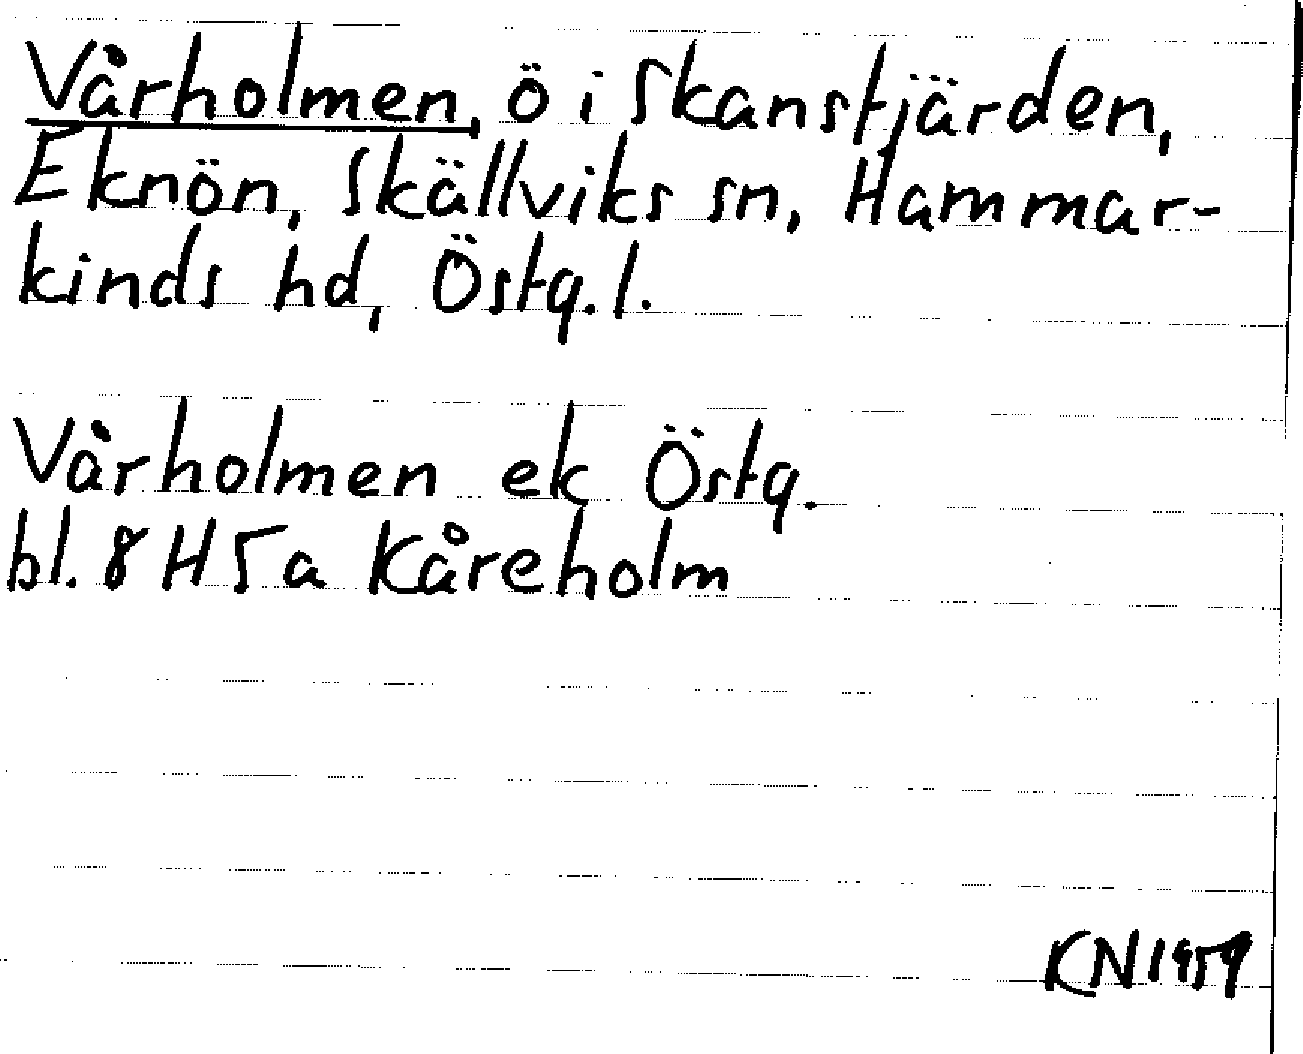 Vårholmen, ö i Skansfjärden,
Eknön, Skällviks sn, Hammar-
kinds hd, Östg.l.
Vårholmen ek Östg.
bl. 8 H 5 a Kåreholm
KN 1959